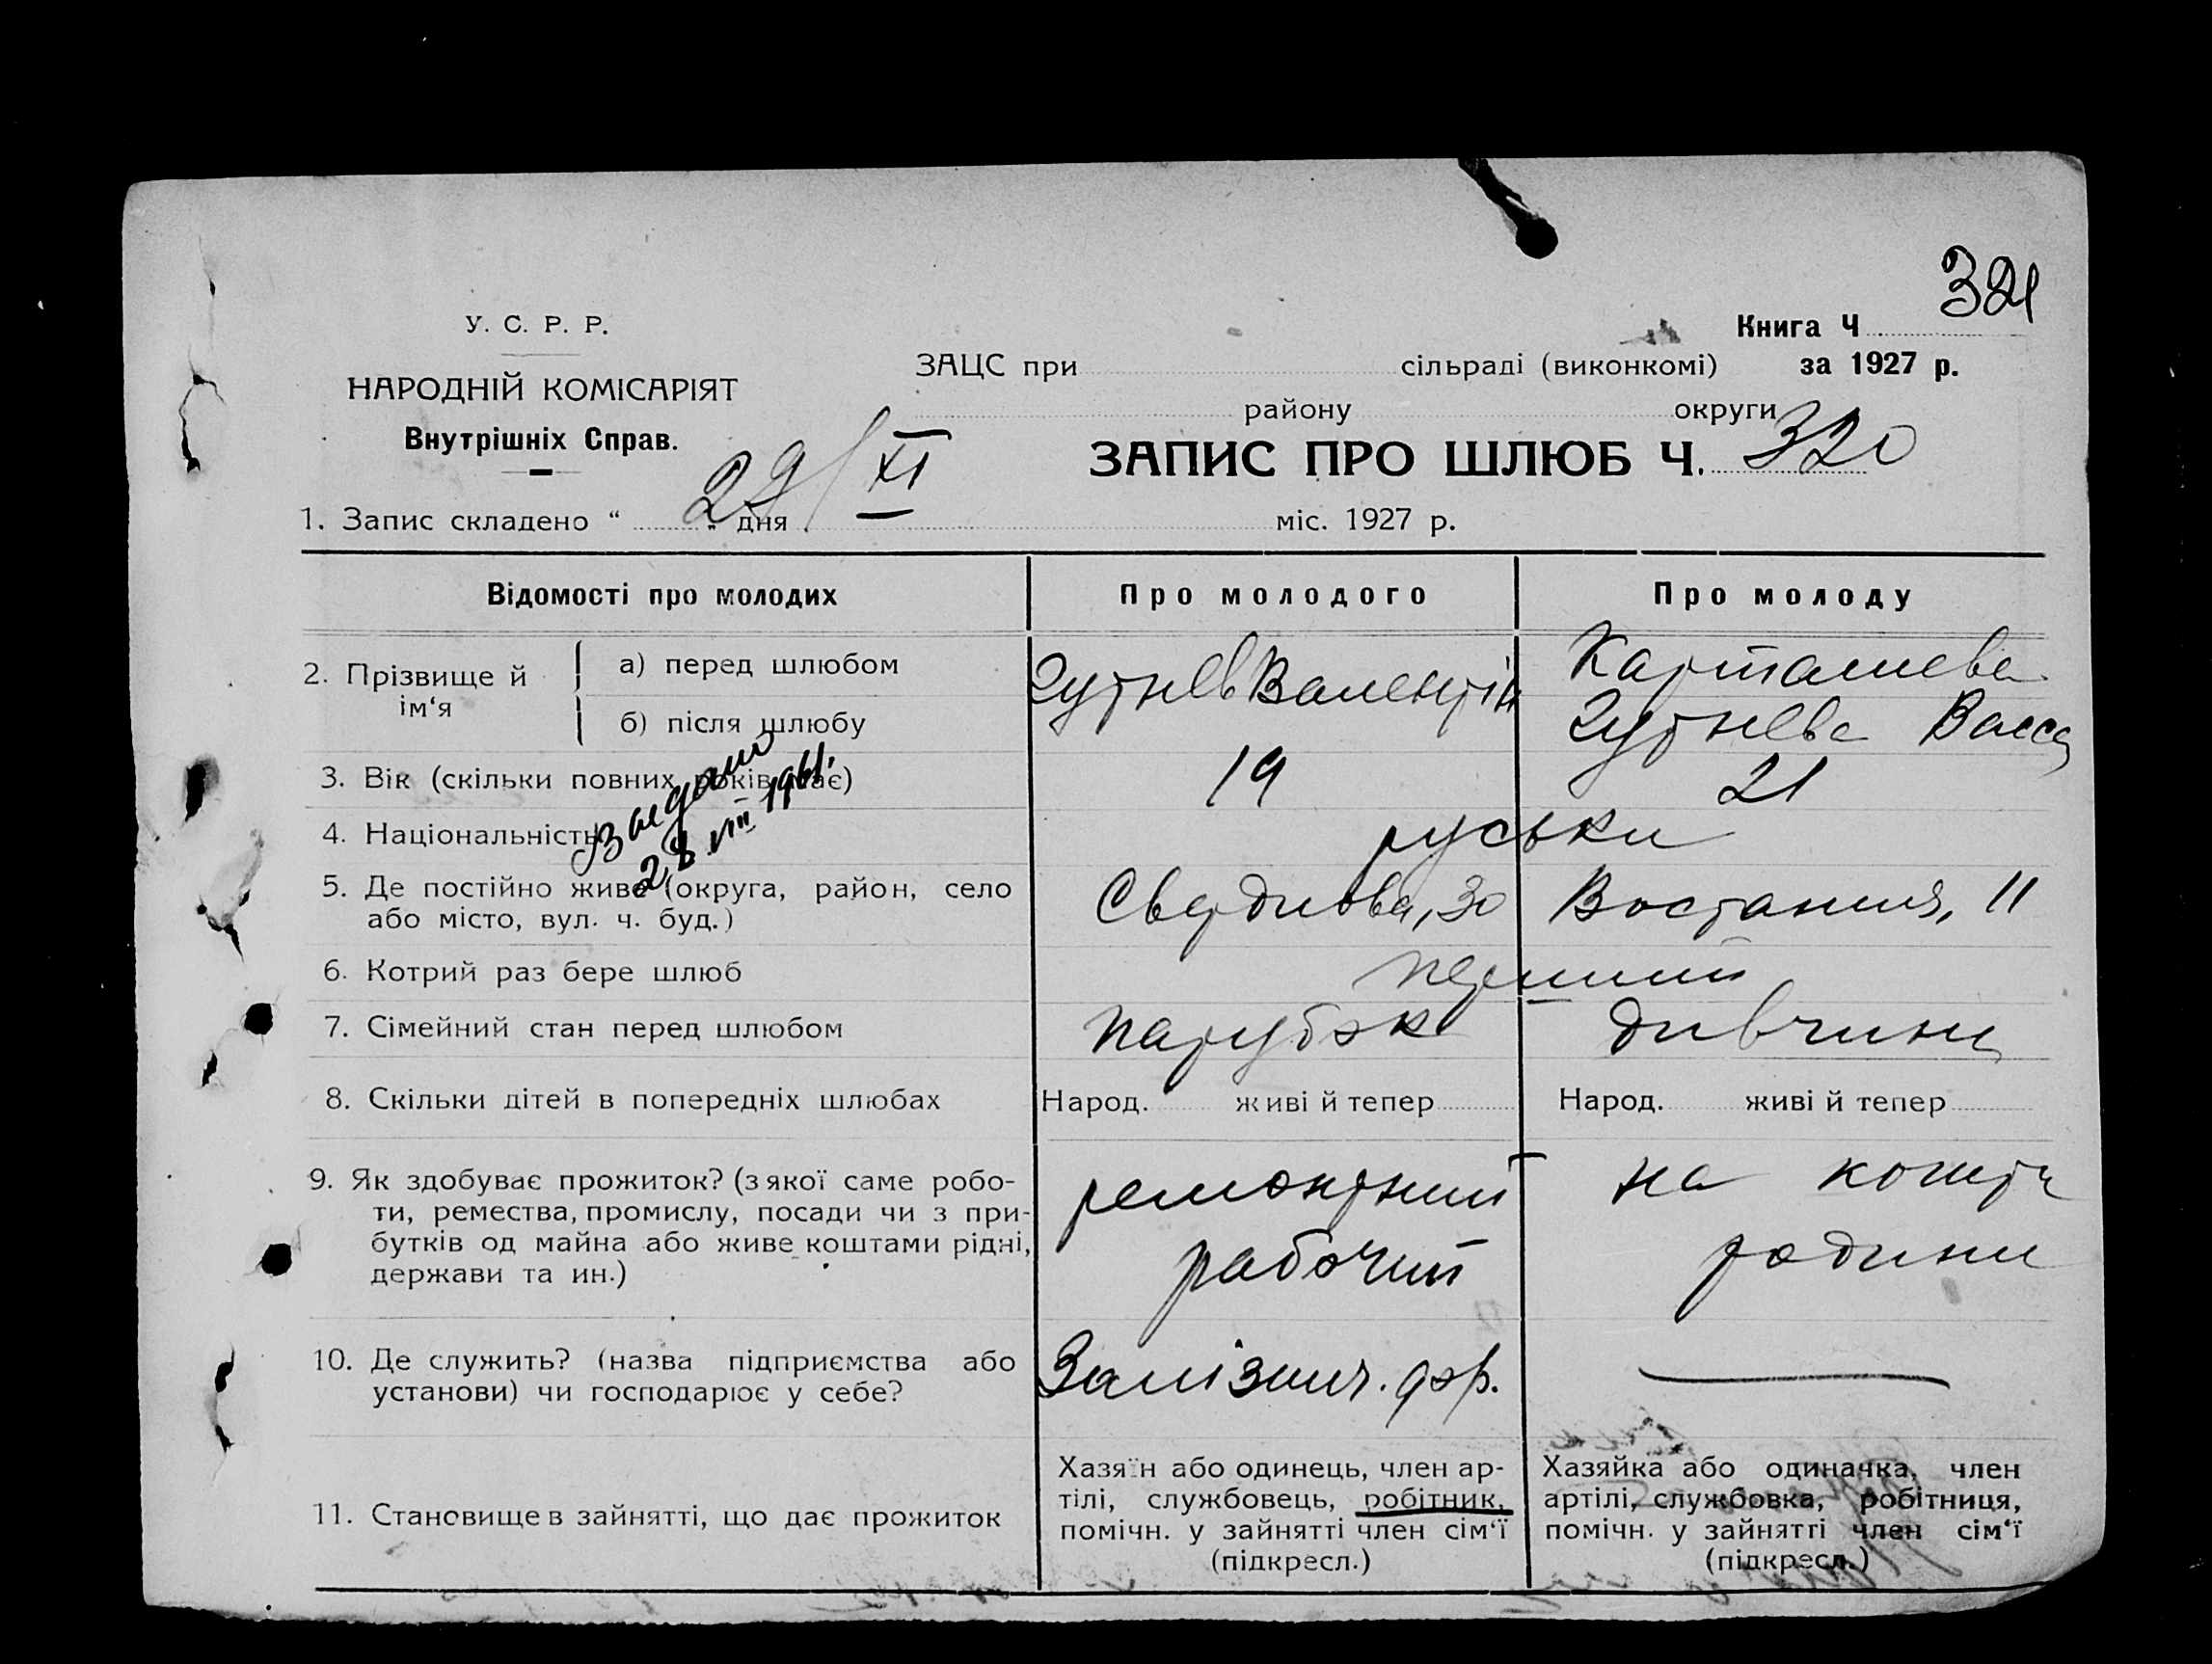 321
У. С. Р. Р.
Книга Ч
ЗАЦС при сільраді (виконкомі) за 1927 р.
НАРОДНІЙ КОМІСАРІЯТ
району округи
Внутрішніх Справ.
ЗАПИС ПРО ШЛЮБ Ч. 320
1. Запис складено " 29/XI " дня міс. 1927 р.
Відомості про молодих Про молодого Про молоду
2. Прізвище й ім‘я
а) перед шлюбом Гутнєв Валентін Карташева
б) після шлюбу Гутнєва Васса
3. Вік (скільки повних років має) 19 21
Выдано
28 VIII 1961.
4. Національність руськи
5. Де постійно живе (округа, район, село Свердлова, 30 Востания, 11
або місто, вул. ч. буд.)
6. Котрий раз бере шлюб перший
7. Сімейний стан перед шлюбом парубок дивчина
8. Скільки дітей в попередніх шлюбах Народ. живі й тепер Народ. живі й тепер
9. Як здобуває прожиток? (з якої саме робо- ремонтний на кошти
ти, ремества, промислу, посади чи з при-
бутків од майна або живе коштами рідні, рабочий родини
держави та ин.)
10. Де служить? (назва підприємства або Залізнич. дор.
установи) чи господарює у себе?
11. Становище в зайнятті, що дає прожиток
Хазяїн або одинець, член ар-
тілі, службовець, робітник,
помічн. у зайнятті член сім‘ї
(підкресл.)
Хазяйка або одиначка, член
артілі, службовка, робітниця,
помічн. у зайнятті член сім‘ї
(підкресл.)